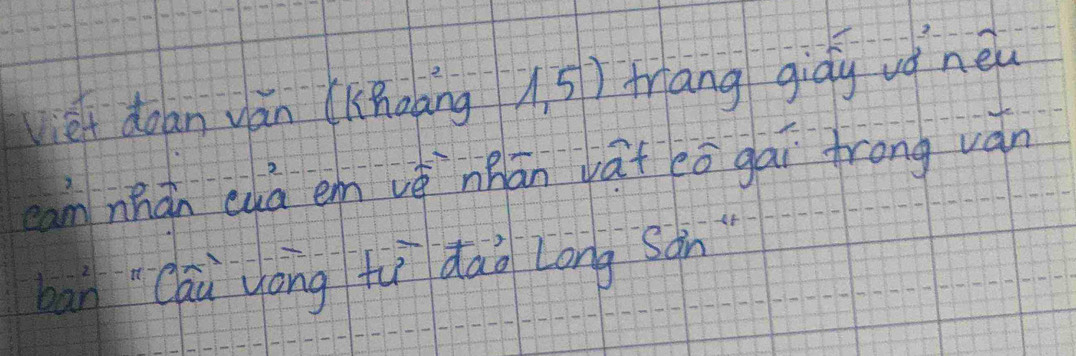 Viết đoạn văn (Khoảng 1,5) trang giấy vở nêu
cảm nhận của em về nhân vật cô gái trong văn
bản "Cầu vồng từ đảo Long Sơn"